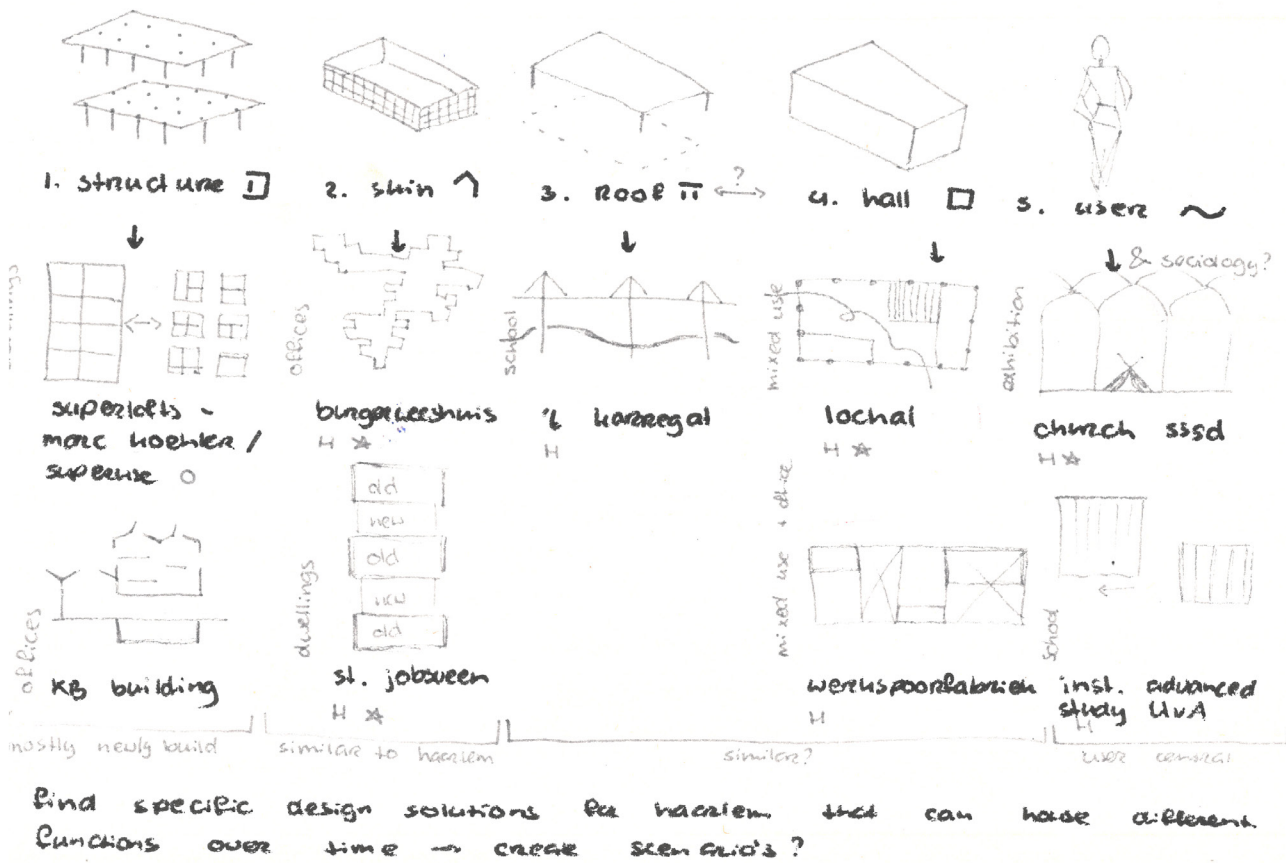 1. structure
2. skin
3. Roof
?
4. hall
5. user
& sociology?
dwellings
offices
school
mixed use
exhibition
superlofts -
marc koehler /
superuse
burgerweeshuis
H
't karregat
H
lochal
H
church sssd
H
offices
dwellings
old
new
old
new
old
mixed use + office
school
KB building
st. jobsveen
H
werkspoorfabriek
H
inst. advanced
study UvA
H
mostly newly build
similar to haarlem
similar?
user central
find specific design solutions for haarlem that can house different
functions over time → create scenario's?